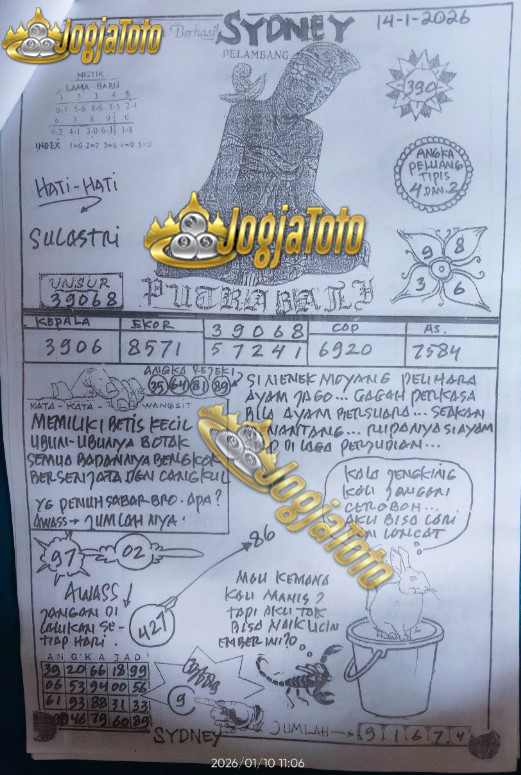 JogjaToto
Berhasil SYDNEY
14-1-2026
PELAMBANG
MISTIK
LAMA - BARU
INDEX
390
HATI-HATI
ANGKA
PELUANG
TIPIS
4 DAN 2
SULASTRI
JogjaToto
9 8
3 6
UNSUR
39068
PUTRA BALI
KEPALA EKOR 39068 COP AS.
3906 8571 57241 6920 7584
ANGKA REJEKI
35 64 81 89
KATA - KATA WANGSIT
SI NENEK MOYANG PELIHARA
AYAM JAGO... GAGAH PERKASA
BILA AYAM BERSUARA... SEAKAN
NANTANG... RUPANYA SI AYAM
DI LAGA PERJUDIAN...
MEMILIKI BETIS KECIL
UBUN-UBUNYA BOTAK
SEMUA BADANNYA BENGKOK
BERSENJATA DGN CANGKUL
YG PENUH SABAR BRO. APA?
AWASS → JUMLAHNYA.
JogjaToto
KALO JENGKING
KAU JANGAN
CEROBOH...
AKU BISA LARI
LONCAT
97 02 86
AWASS
JANGAN DI
LALUKAN SE-
TIAP HARI.
427
MAU KEMANA
KAU MANIS?
TAPI AKU TAK
BISA NAIK LICIN
EMBER INI?
ANGKA JADI
39 20 66 18 99
06 53 94 00 56
61 93 88 31 33
46 79 60 89
9
SYDNEY
JUMLAH → 9 1 6 7 4
2026/01/10 11:06